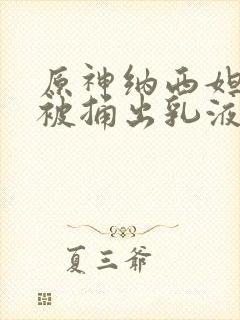 原神纳西妲
被捅出乳液
夏三爷